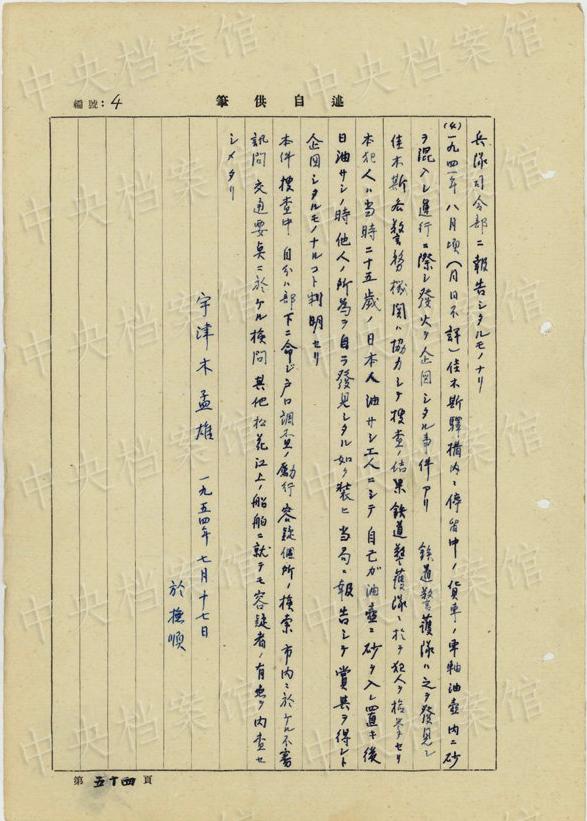 編號：4
述自供筆
兵隊司令部ニ報告シタルモノナリ
(4)一九四一年八月頃(月日不詳)佳木斯驛構内ニ停留中ノ貨車ノ車軸油壺内ニ砂
ヲ混入シ運行ニ際シ發火ヲ企図シタル事件アリ 鉄道警護隊ハ之ヲ發見シ
佳木斯各警務機関ハ協力シテ捜査ノ結果鉄道警護隊ニ於テ犯人ヲ検挙セリ
本犯人ハ当時二十五歳ノ日本人油サシ工人ニシテ自己ガ油壺ニ砂ヲ入レ置キ後
日油サシノ時他人ノ所為ヲ自ラ發見シタル如ク装ヒ当局ニ報告シテ賞與ヲ得ント
企図シタルモノナルコト判明セリ
本件捜査中自分ハ部下ニ命ジ戸口調査ノ勵行容疑個所ノ検索市内ニ於ケル不審
訊問交通要点ニ於ケル検問其他松花江上ノ船舶ニ就テモ容疑者ノ有無ヲ内査セ
シメタリ
宇津木孟雄 一九五四年七月十七日
於撫順
第五十四頁
中央档案馆